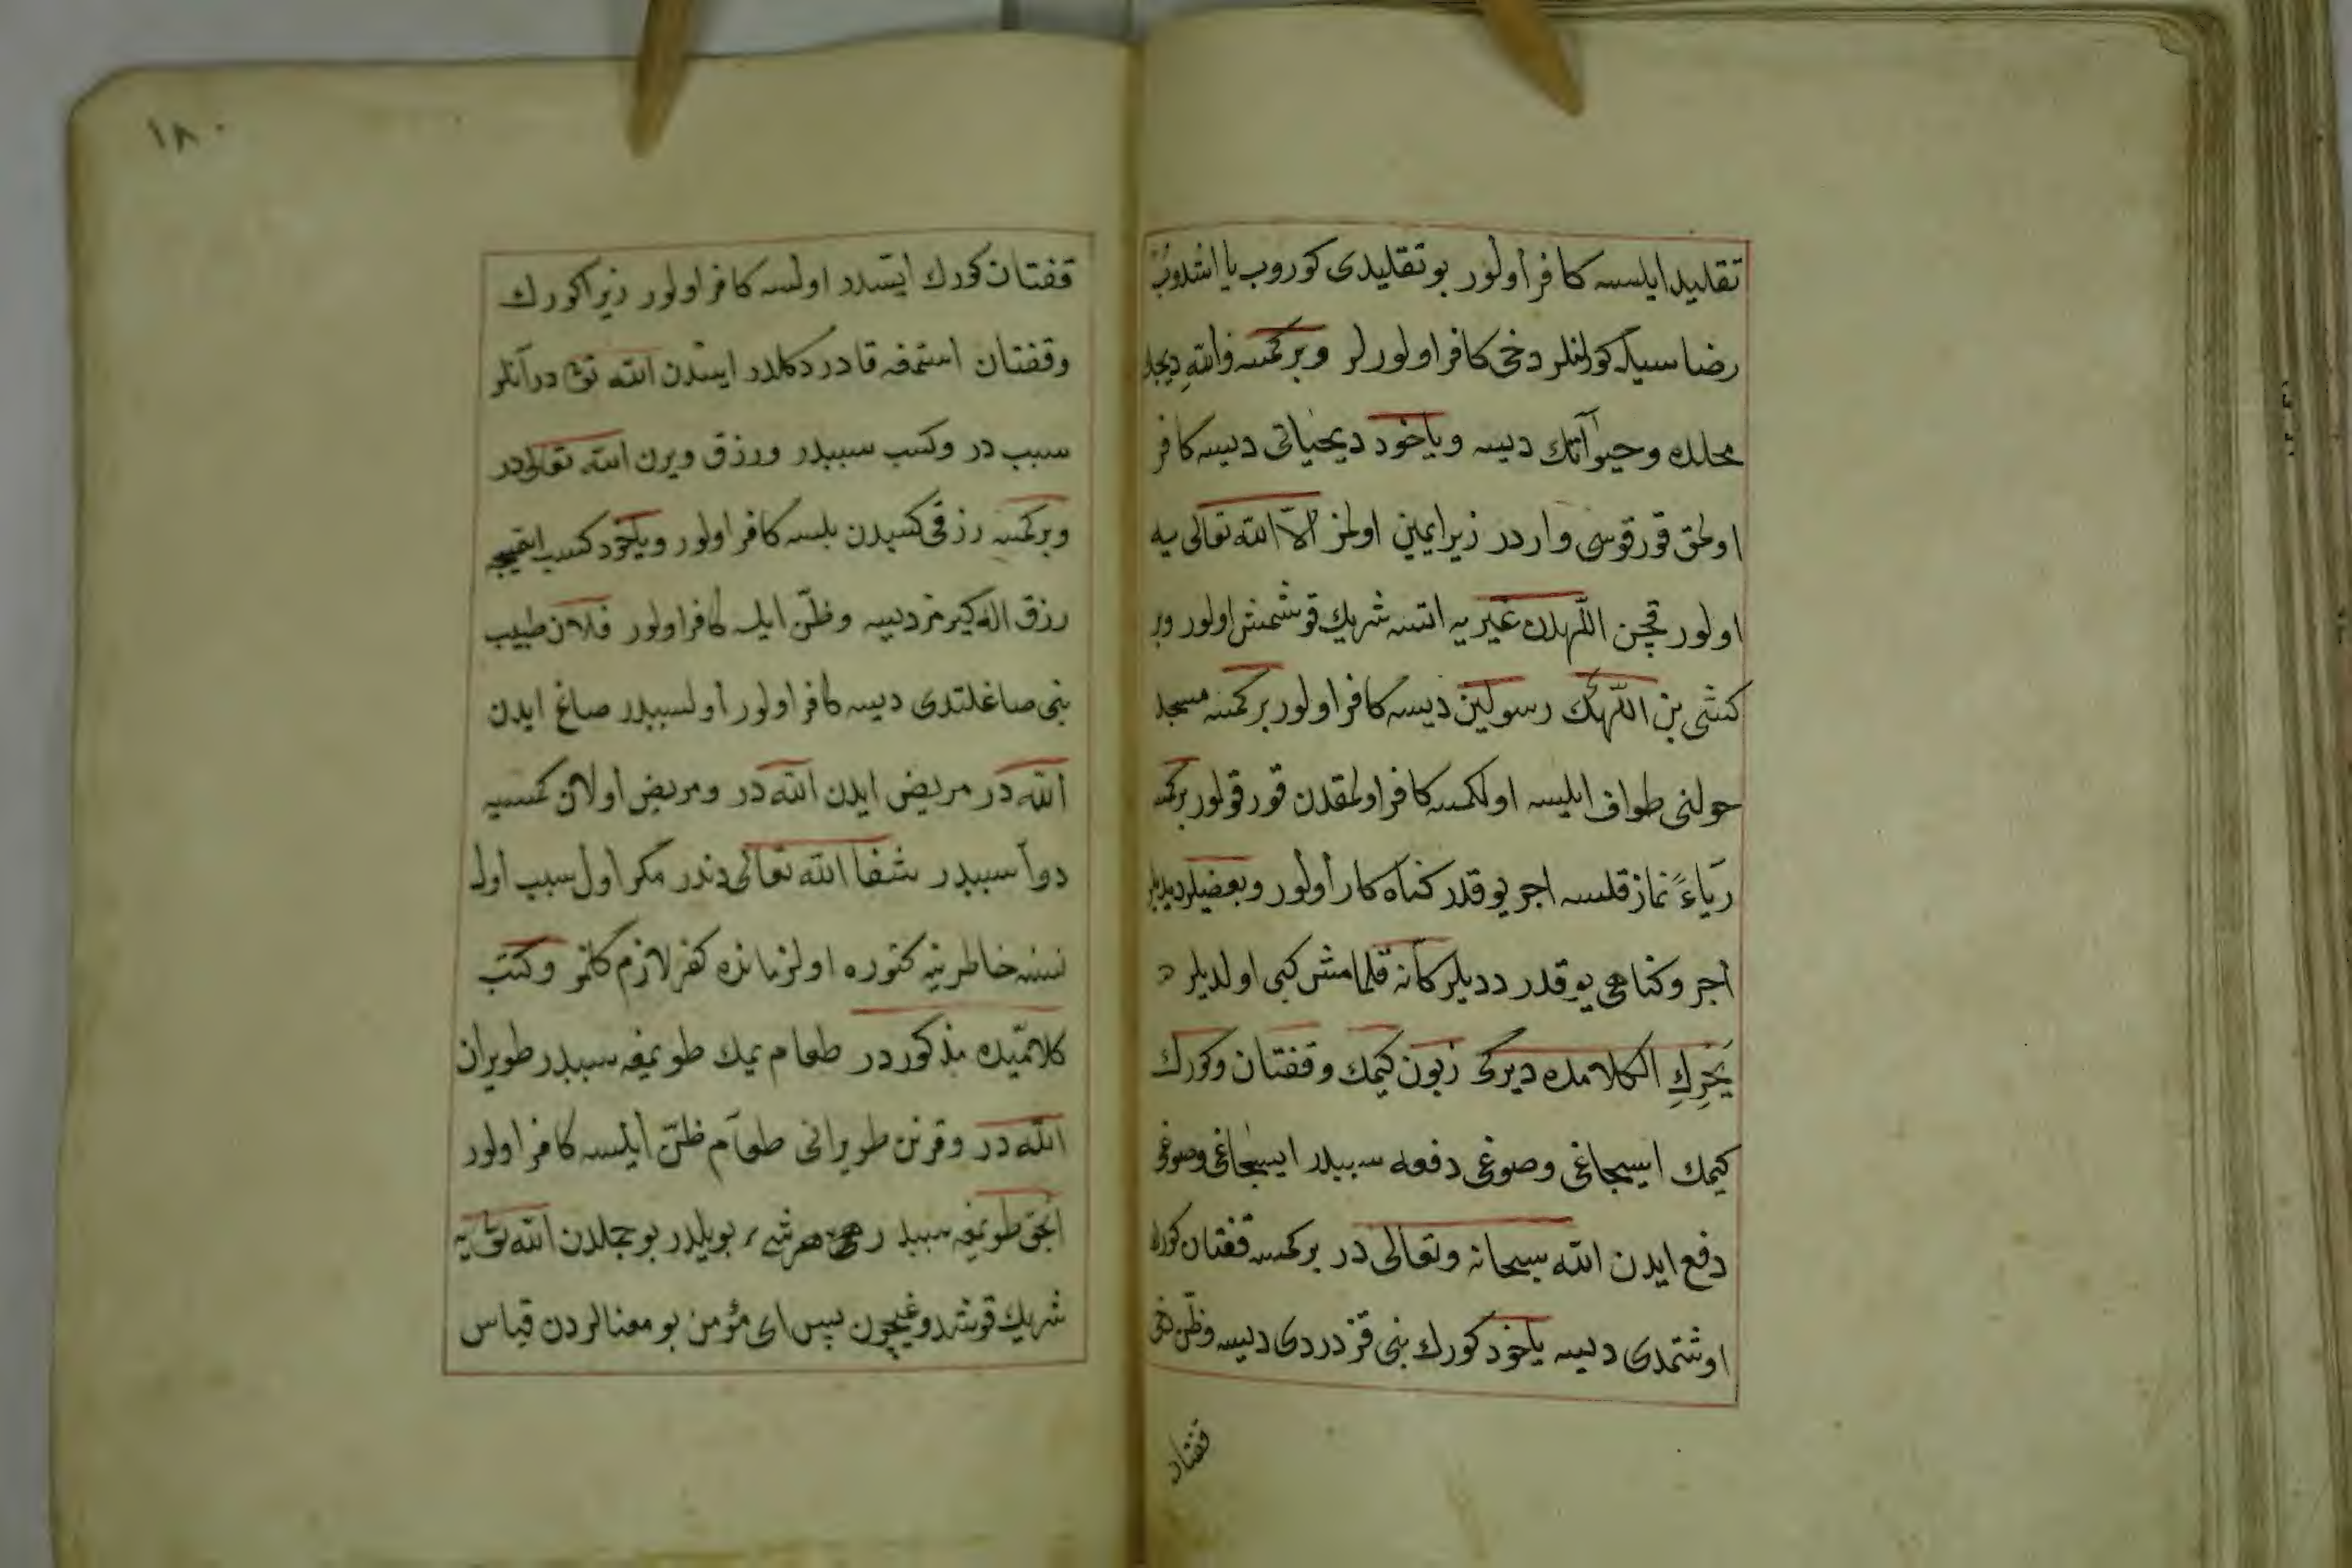 تقلید ایلسه کافر اولور بو تقلیدی کوروب یا اشدوب
رضا سیله کولنلر دخی کافر اولورلر وبر کمسه والله دیجك
محلده وحیوآتك دیسه ویاخود دیحیاتی دیسه کافر
اولمق قورقوسی واردر زیرا یمین اولمز الّا الله تعالی یه
اولور قچن اللّهدن غیری یه اتسه شریك قوشمش اولور وبر
کشی بن اللّهك رسولین دیسه کافر اولور بر کمسه مسجد
حولنی طواف ایلسه اول کمسه کافر اولمقدن قورقولور بر کمسه
ریاءً نماز قلسه اجر یوقدر کناه کار اولور وبعضیلر دیدیلر
اجر وکناهی یوقدر ددیلر کانّه قلمامش کبی اولدیلر
بحر الکلامده دیرکی زبون کیمك وقفتان وکورك
کیمك ایسجاغی وصوغی دفعه سببدر ایسجاغی وصوغی
دفع ایدن الله سبحانه وتعالی در بر کمسه قفتان کورك
اوشتمدی دیسه یاخود کورك بنی قزدردی دیسه وظنّ دخی
قفتان
١٨٠
قفتان کورك ایسدر اولسه کافر اولور زیرا کورك
وقفتان استمغه قادر دکلدر ایسدن الله تع در آنلر
سبب در وکسب سببدر ورزق ویرن الله تعالی در
وبر کمسه رزقی کسبدن بلسه کافر اولور ویاخود کسب اتمیجه
رزق اله کیرمز دیسه وظنّ ایلسه کافر اولور فلان طبیب
بنی صاغلتدی دیسه کافر اولور اول سببدر صاغ ایدن
الله در مریض ایدن الله در ومریض اولان کمسیه
دوآ سببدر شفا الله تعالی دندر مکر اول سبب اول
نسنه خاطرینه کتوره اولزمانده کفر لازم کلمز وکتب
کلامیّده مذکوردر طعام یمك طویمغه سببدر طویران
الله در وقرنن طویرانی طعام ظنّ ایلسه کافر اولور
انجق طویمغه سببدر هر شیء بویلدر بو جلدن الله تع یه
شریك قوشدوغیچون پس ای مؤمن بو معنالردن قیاس